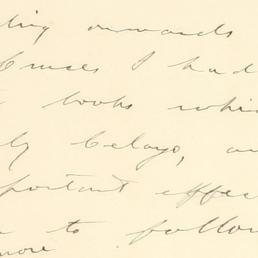 ding onwards
I had
books which
ly belong, an
portant effec
to follow
more